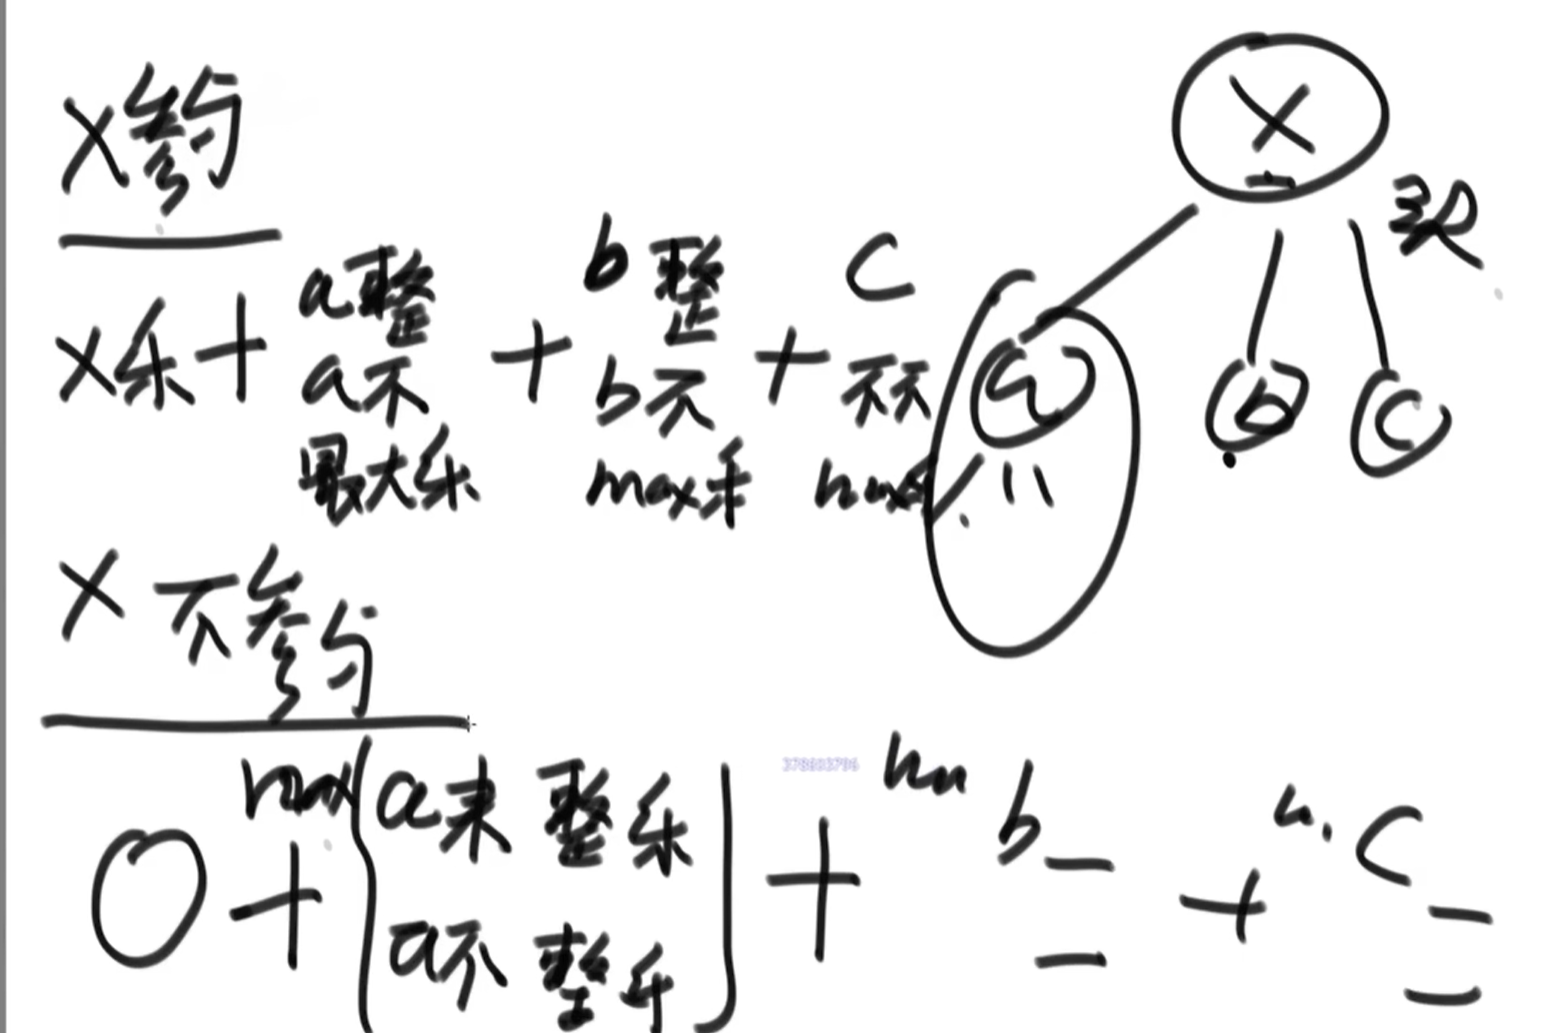 X参与
X乐+ a整 a不 最大乐 + b整 b不 max乐 + C 不 max
X 不参与
0+ max a来 整乐 a不 整乐 + b + C
X
a b c
378803796